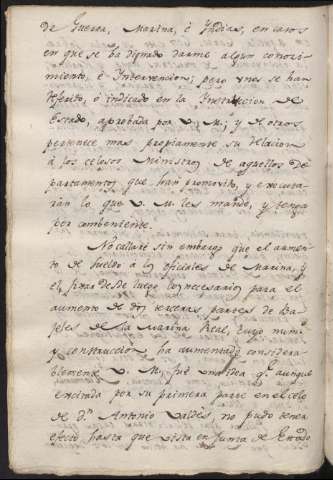 de Guerra, Marina, ó Indias, en casos
en que se ha dignado darme algun conoci-
miento, é Intervencion; pero unos se han
descrito, ó indicado en la Instruccion de
Estado, aprobada por V. M.; y de otros
pertenece mas propiamente su relacion
á los celosos Ministros de aquellos De-
partamentos que han promovido, y executa-
ran lo que V. M. les mande, y tenga
por combeniente.
No callaré sin embargo que el aumen-
to de sueldo á los oficiales de Marina, y
el fixar desde luego los necesarios para el
aumento de dos terceras partes de Ba-
jeles de la Marina Real, cuyo num.o
y construccion ha aumentado considera-
blemente V. M. fué una idea q.e aunque
excitada por su primera parte en el celo
de d.n Antonio Valdes, no pudo tener
efecto hasta que vista en Junta de Estado